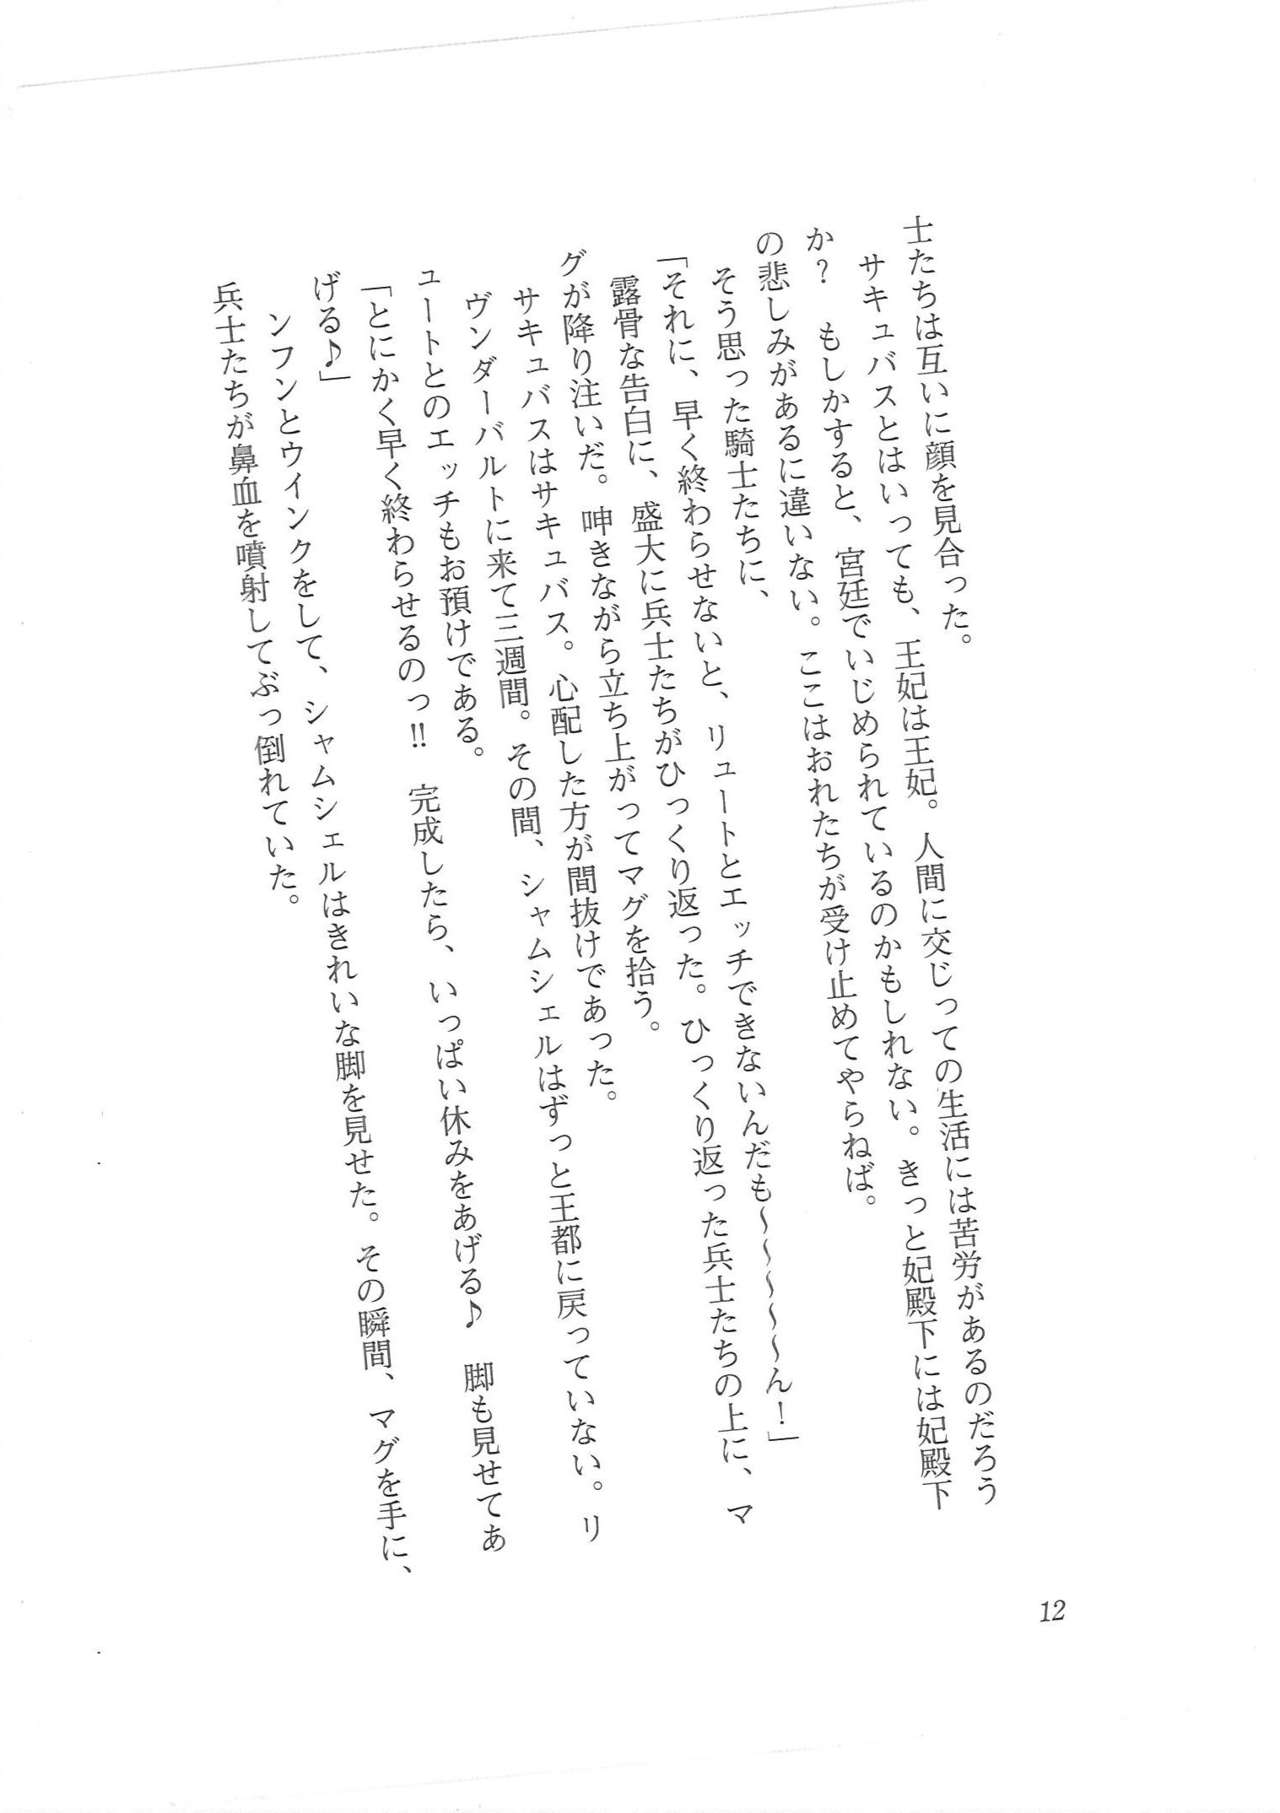 士たちは互いに顔を見合った。
　サキュバスとはいっても、王妃は王妃。人間に交じっての生活には苦労があるのだろう
か？　もしかすると、宮廷でいじめられているのかもしれない。きっと妃殿下には妃殿下
の悲しみがあるに違いない。ここはおれたちが受け止めてやらねば。
　そう思った騎士たちに、
「それに、早く終わらせないと、リュートとエッチできないんだも～～～～～ん！」
　露骨な告白に、盛大に兵士たちがひっくり返った。ひっくり返った兵士たちの上に、マ
グが降り注いだ。呻きながら立ち上がってマグを拾う。
　サキュバスはサキュバス。心配した方が間抜けであった。
　ヴンダーバルトに来て三週間。その間、シャムシェルはずっと王都に戻っていない。リ
ュートとのエッチもお預けである。
「とにかく早く終わらせるのっ!!　完成したら、いっぱい休みをあげる♪　脚も見せてあ
げる♪」
　ンフンとウインクをして、シャムシェルはきれいな脚を見せた。その瞬間、マグを手に、
兵士たちが鼻血を噴射してぶっ倒れていた。
12